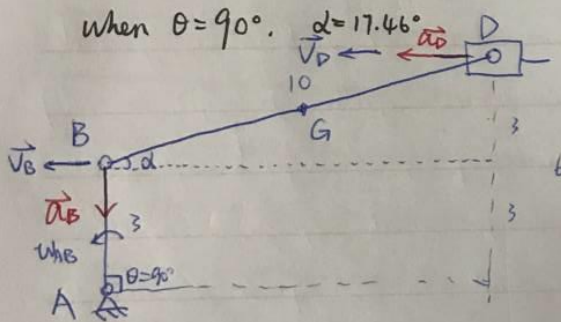 when θ=90°. α=17.46°
V_D a_D D
10
B G 3
V_B α
a_B 3 3
ω_AB
θ=90°
A